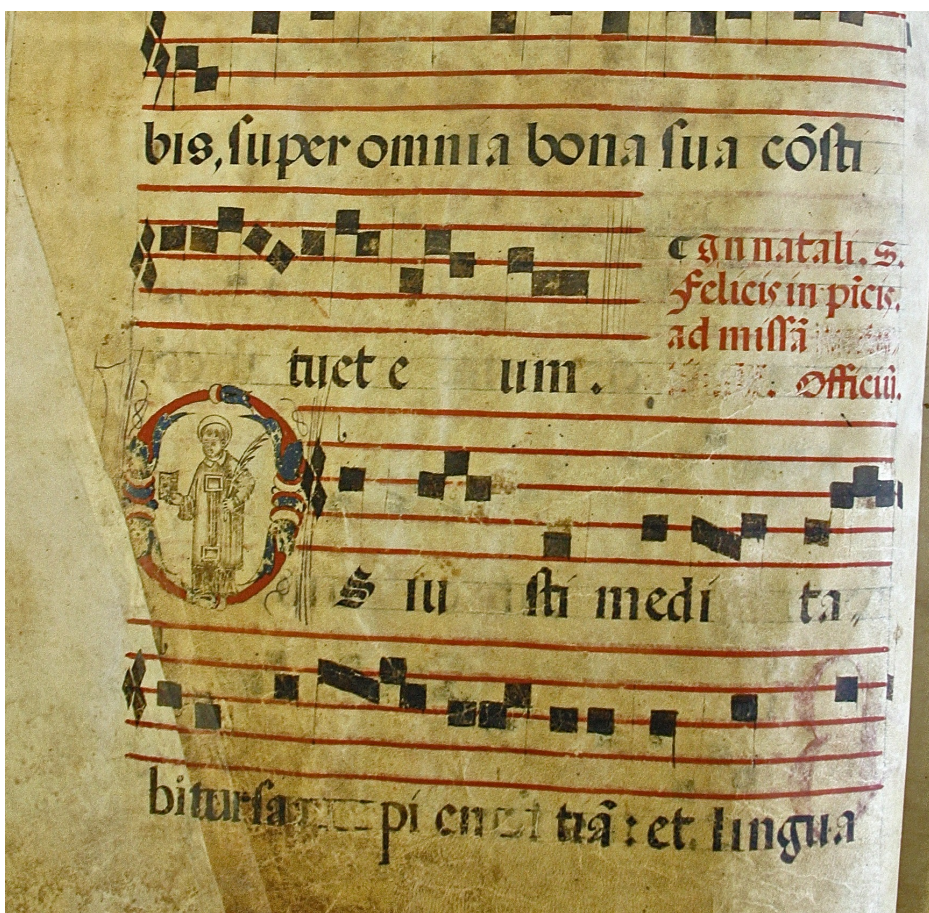 bis, super omnia bona sua cõsti
tuet e um.
¶ Jn natali. S.
Felicis in pĩcis.
ad missã
Officiũ.
OS iu sti medi ta,
bitur sa pi en tiã : et lingua